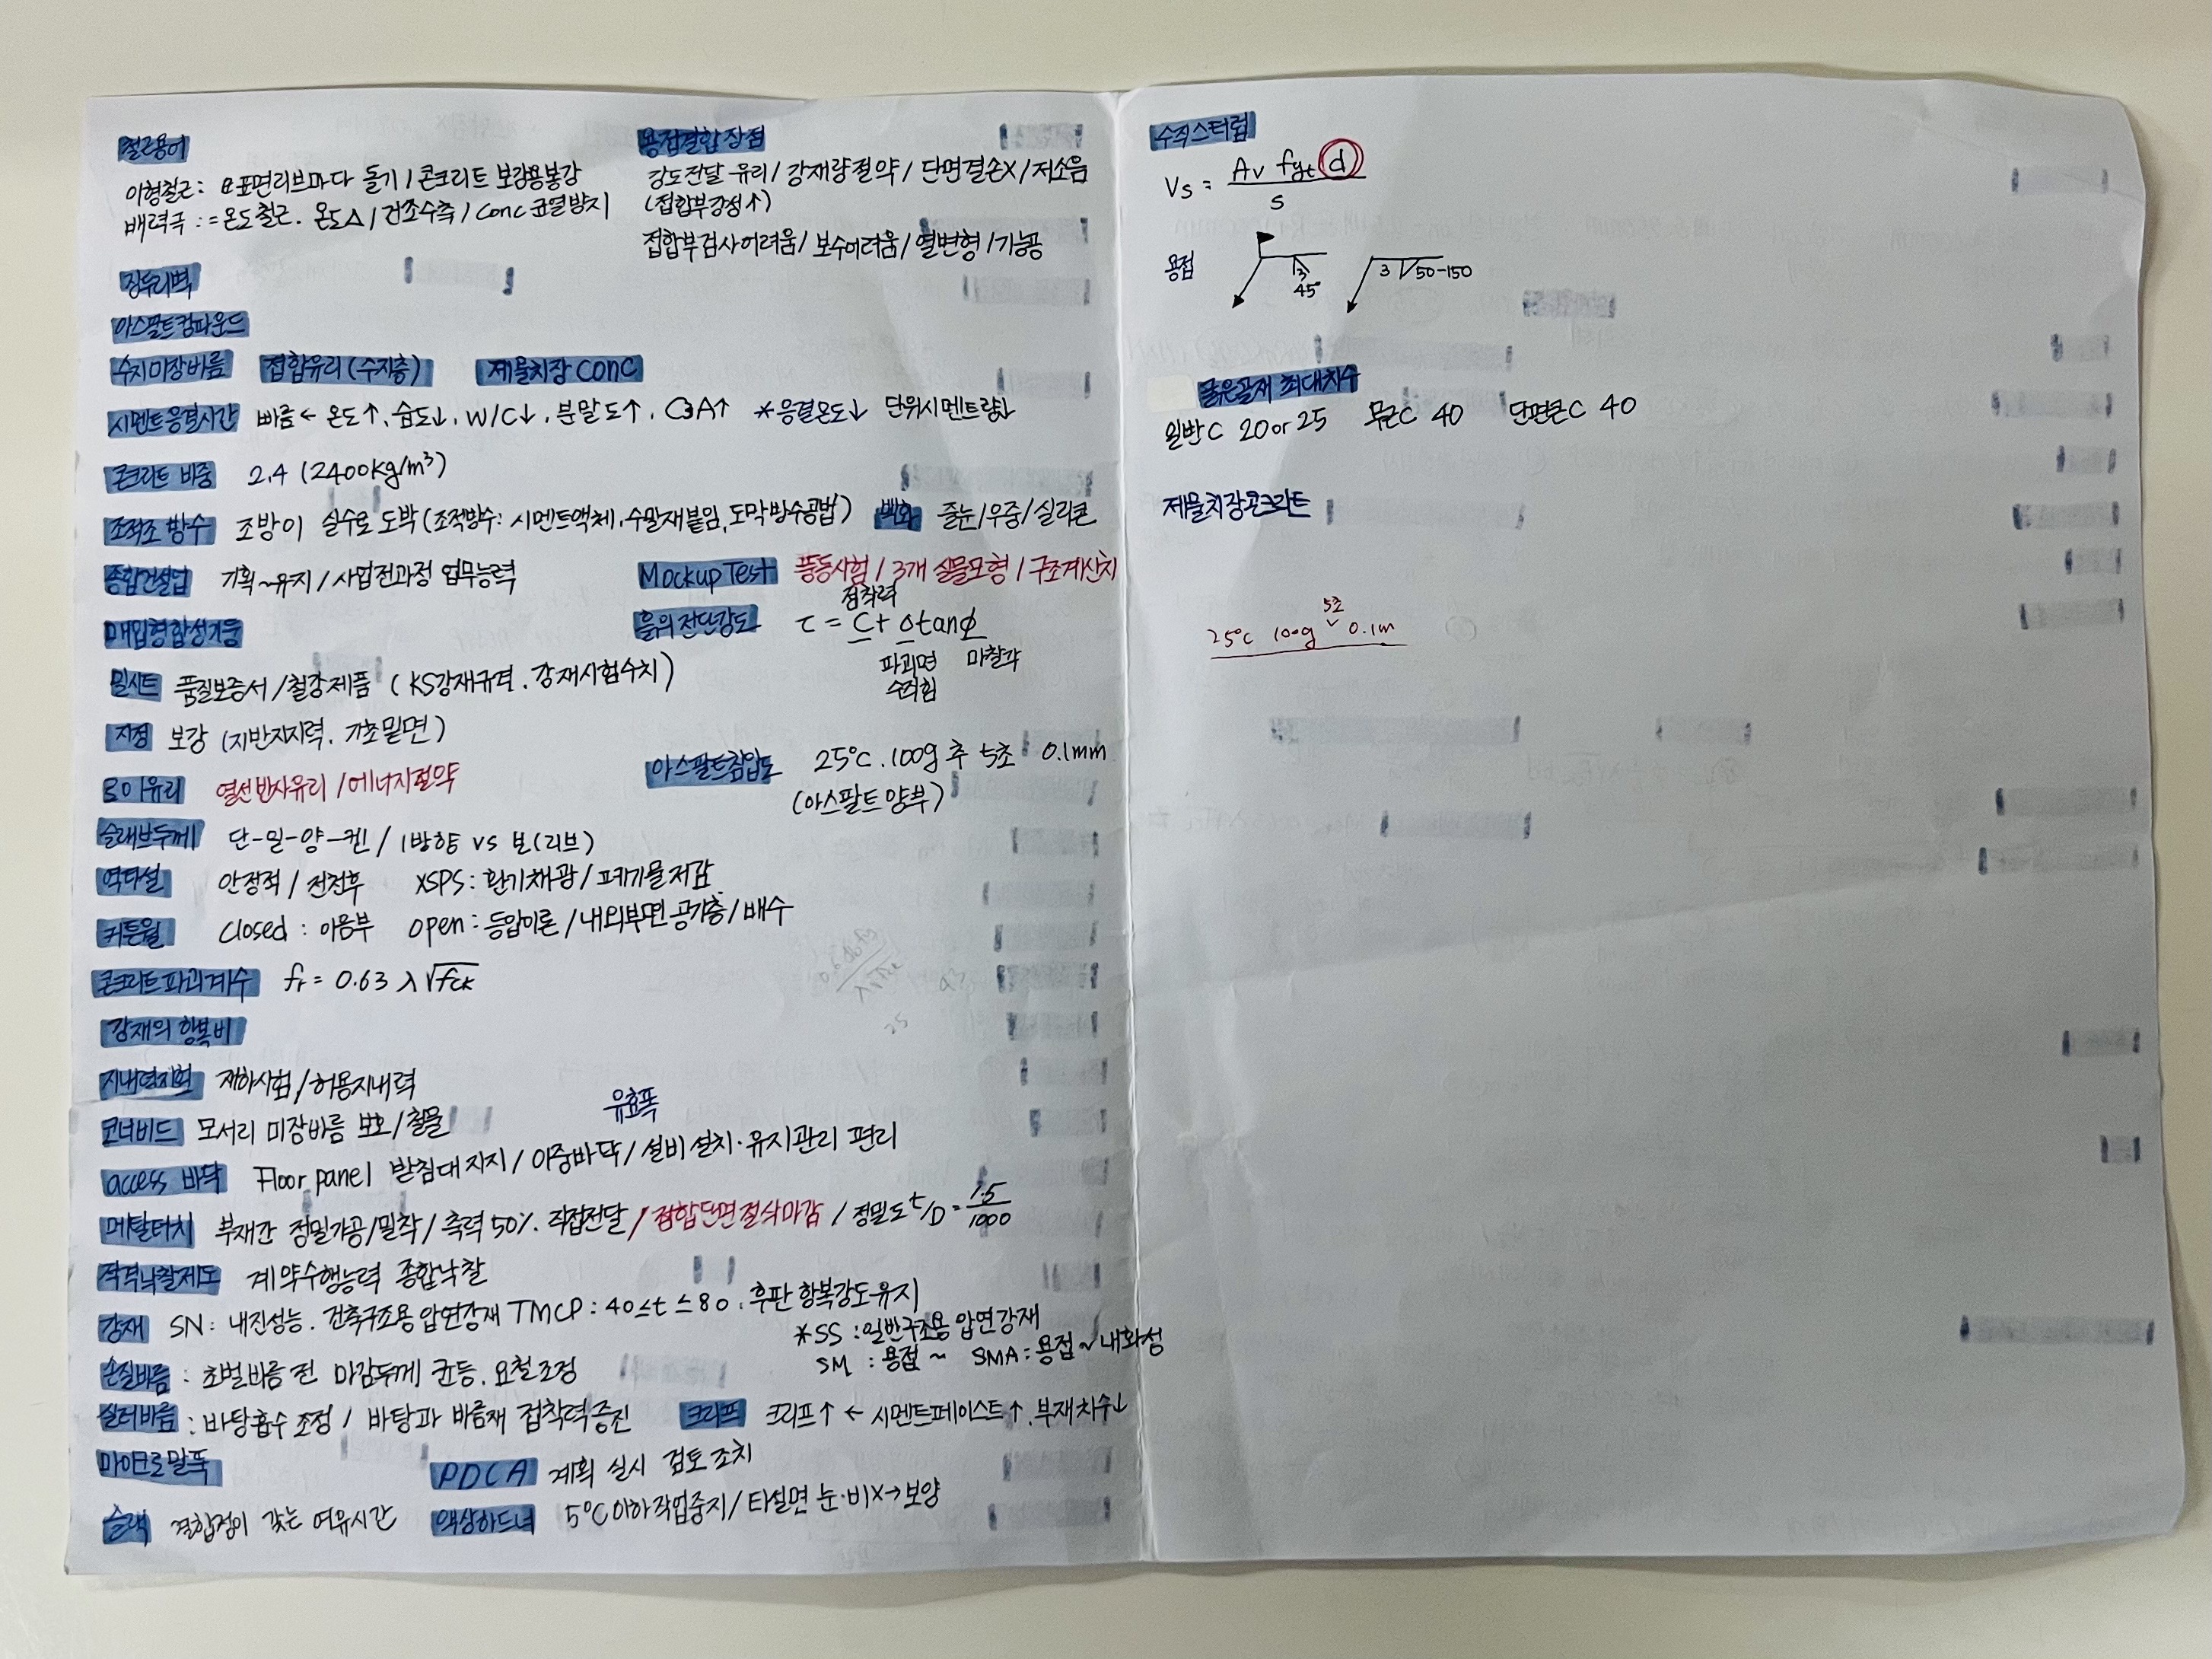 철근용어
이형철근: 표면리브마다 돌기 / 콘크리트 보강용봉강
배력근: =온도철근. 온도△ / 건조수축 / Conc 균열방지
용접결합 장점
강도전달 유리 / 강재량절약 / 단면결손X / 저소음
(접합부강성↑)
접합부검사어려움 / 보수어려움 / 열변형 / 기능공
징두리벽
아스팔트컴파운드
수지미장바름 접합유리(수지층) 제물치장 Conc
시멘트응결시간 빠름 ← 온도↑, 습도↓, W/C↓, 분말도↑, C3A↑ *응결온도↓ 단위시멘트량↓
콘크리트 비중 2.4 (2400kg/m³)
조적조 방수 조방이 실수로 도박 (조적방수: 시멘트액체, 수밀재붙임, 도막방수공법) 백화 줄눈/우중/실리콘
종합건설업 기획~유지 / 사업전과정 업무능력 Mockup Test 풍동시험 / 3개 실물모형 / 구조계산치
매입형합성기둥 흙의 전단강도 τ = C + σtanφ
점착력
파괴면 마찰각
수직힘
밀시트 품질보증서 / 철강제품 (KS강재규격, 강재시험수치)
지정 보강 (지반지지력, 기초밑면)
로이유리 열선반사유리 / 에너지절약
아스팔트침입도 25°C. 100g 추 5초 0.1mm
(아스팔트 양부)
슬래브두께 단-일-양-켄 / 1방향 vs 보(리브)
역타설 안정적 / 전천후 XSPS: 환기채광 / 폐기물저감
커튼월 closed: 이음부 open: 등압이론 / 내외부면 공기층 / 배수
콘크리트파괴계수 fr = 0.63 λ √fck
강재의 항복비
지내력시험 재하시험 / 허용지내력
유효폭
코너비드 모서리 미장바름 보호 / 철물
access 바닥 Floor panel 받침대 지지 / 이중바닥 / 설비 설치·유지관리 편리
메탈터치 부재간 정밀가공/밀착 / 축력 50% 직접전달 / 접합단면절삭마감 / 정밀도 t/D = 1.5/1000
적격낙찰제도 계약수행능력 종합낙찰
강재 SN: 내진성능. 건축구조용압연강재 TMCP: 40≤t≤80. 후판 항복강도유지
*SS: 일반구조용 압연강재
SM: 용접~ SMA: 용접~내화성
손질바름: 초벌바름 전 마감두께 균등. 요철조정
실러바름: 바탕흡수 조정 / 바탕과 바름재 접착력증진 크리프 크리프↑ ← 시멘트페이스트↑, 부재치수↓
마이크로말뚝 PDCA 계획 실시 검토 조치
슬랙 결합점이 갖는 여유시간 액상하드너 5°C이하작업중지 / 타설면 눈·비X→보양
수직스터럽
Vs = Av fyt d / s
용접 3 45° 3 50-150
굵은골재 최대치수
일반C 20 or 25 무근C 40 단면큰C 40
제물치장콘크리트
25°C 100g 5초 0.1m